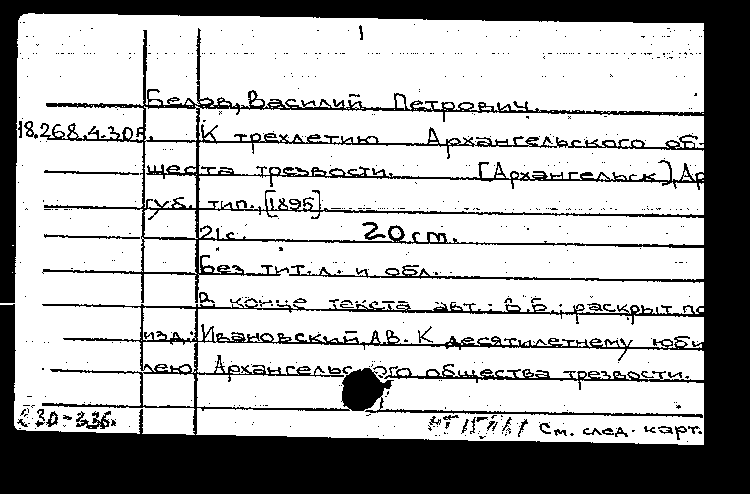 Белов, Василий Петрович.
18.268.4.305. К трехлетию Архангельского об-
щества трезвости. [Архангельск], Ар
губ. тип., [1895].
21 с. 20 cm.
Без тит. л. и обл.
В конце текста авт.: В.Б.; раскрыт по
изд.: Ивановский, А.В. К десятилетнему юби
лею Архангельского общества трезвости.
См. след. карт.